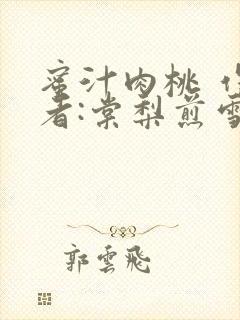 蜜汁肉桃 作
者:棠梨煎雪
郭雲飛